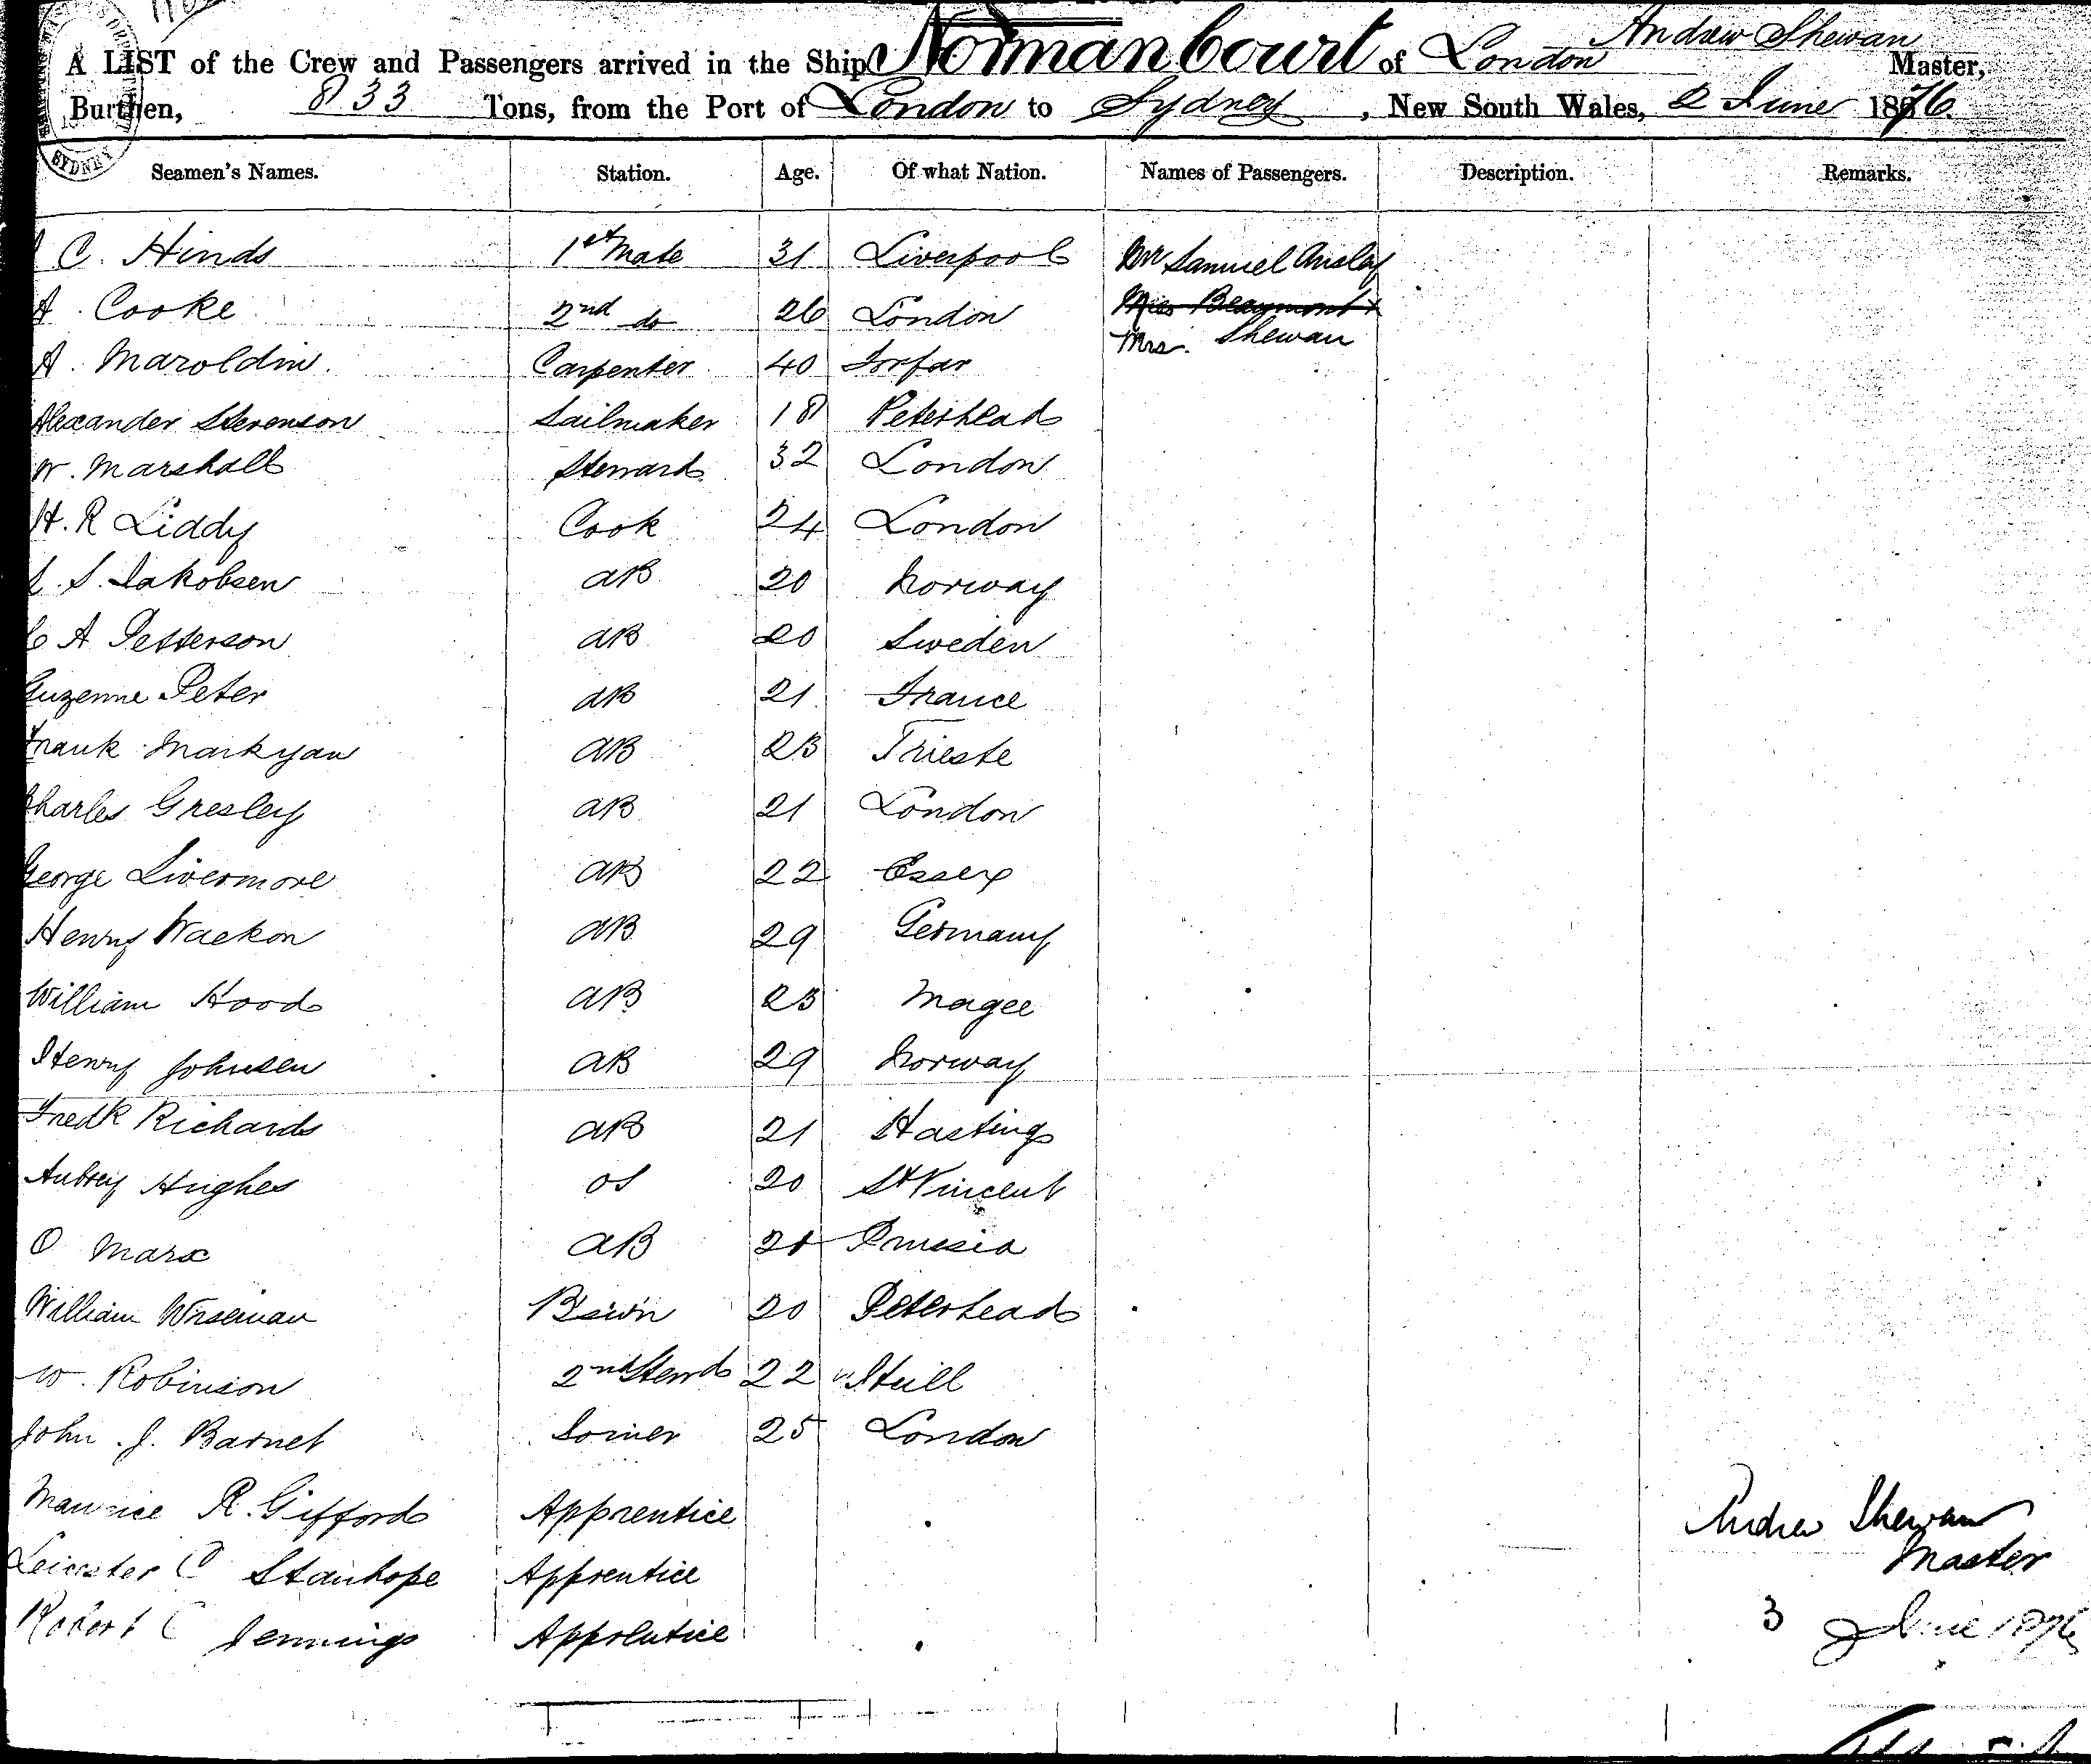 A LIST of the Crew and Passengers arrived in the Ship Norman Court of London Andrew Shewan Master,
Burthen, 833 Tons, from the Port of London to Sydney, New South Wales, 2 June 1876.
Seamen's Names. Station. Age. Of what Nation. Names of Passengers. Description. Remarks.
C. Hinds 1st Mate 31 Liverpool Mr Samuel
A. Cooke 2nd do 26 London Miss Beaumont
Mrs. Shewan
A. Maroldin. Carpenter 40 Forfar
Alexander Stevenson Sailmaker 18 Peterhead
W. Marshall Steward 32 London
H. R Liddy Cook 24 London
S. Jakobsen AB 20 Norway
C A Petterson AB 20 Sweden
Guzenne Peter AB 21 France
Frank Markyan AB 23 Trieste
Charles Gresley AB 21 London
George Livermore AB 22 Essex
Henry Wackon AB 29 Germany
William Hood AB 23 Magee
Henry Johnsen AB 29 Norway
Fredk Richards AB 21 Hastings
Aubrey Hughes OS 20 St Vincent
O Marx AB 21 Prussia
William Wiseman Bswn 20 Peterhead
W. Robinson 2nd Stewd 22 Hull
John. J. Barnet Joiner 25 London
Maurice R. Gifford Apprentice
Leicester C Stanhope Apprentice
Robert C Jennings Apprentice
Andrew Shewan
Master
3 June 1876
SYDNEY